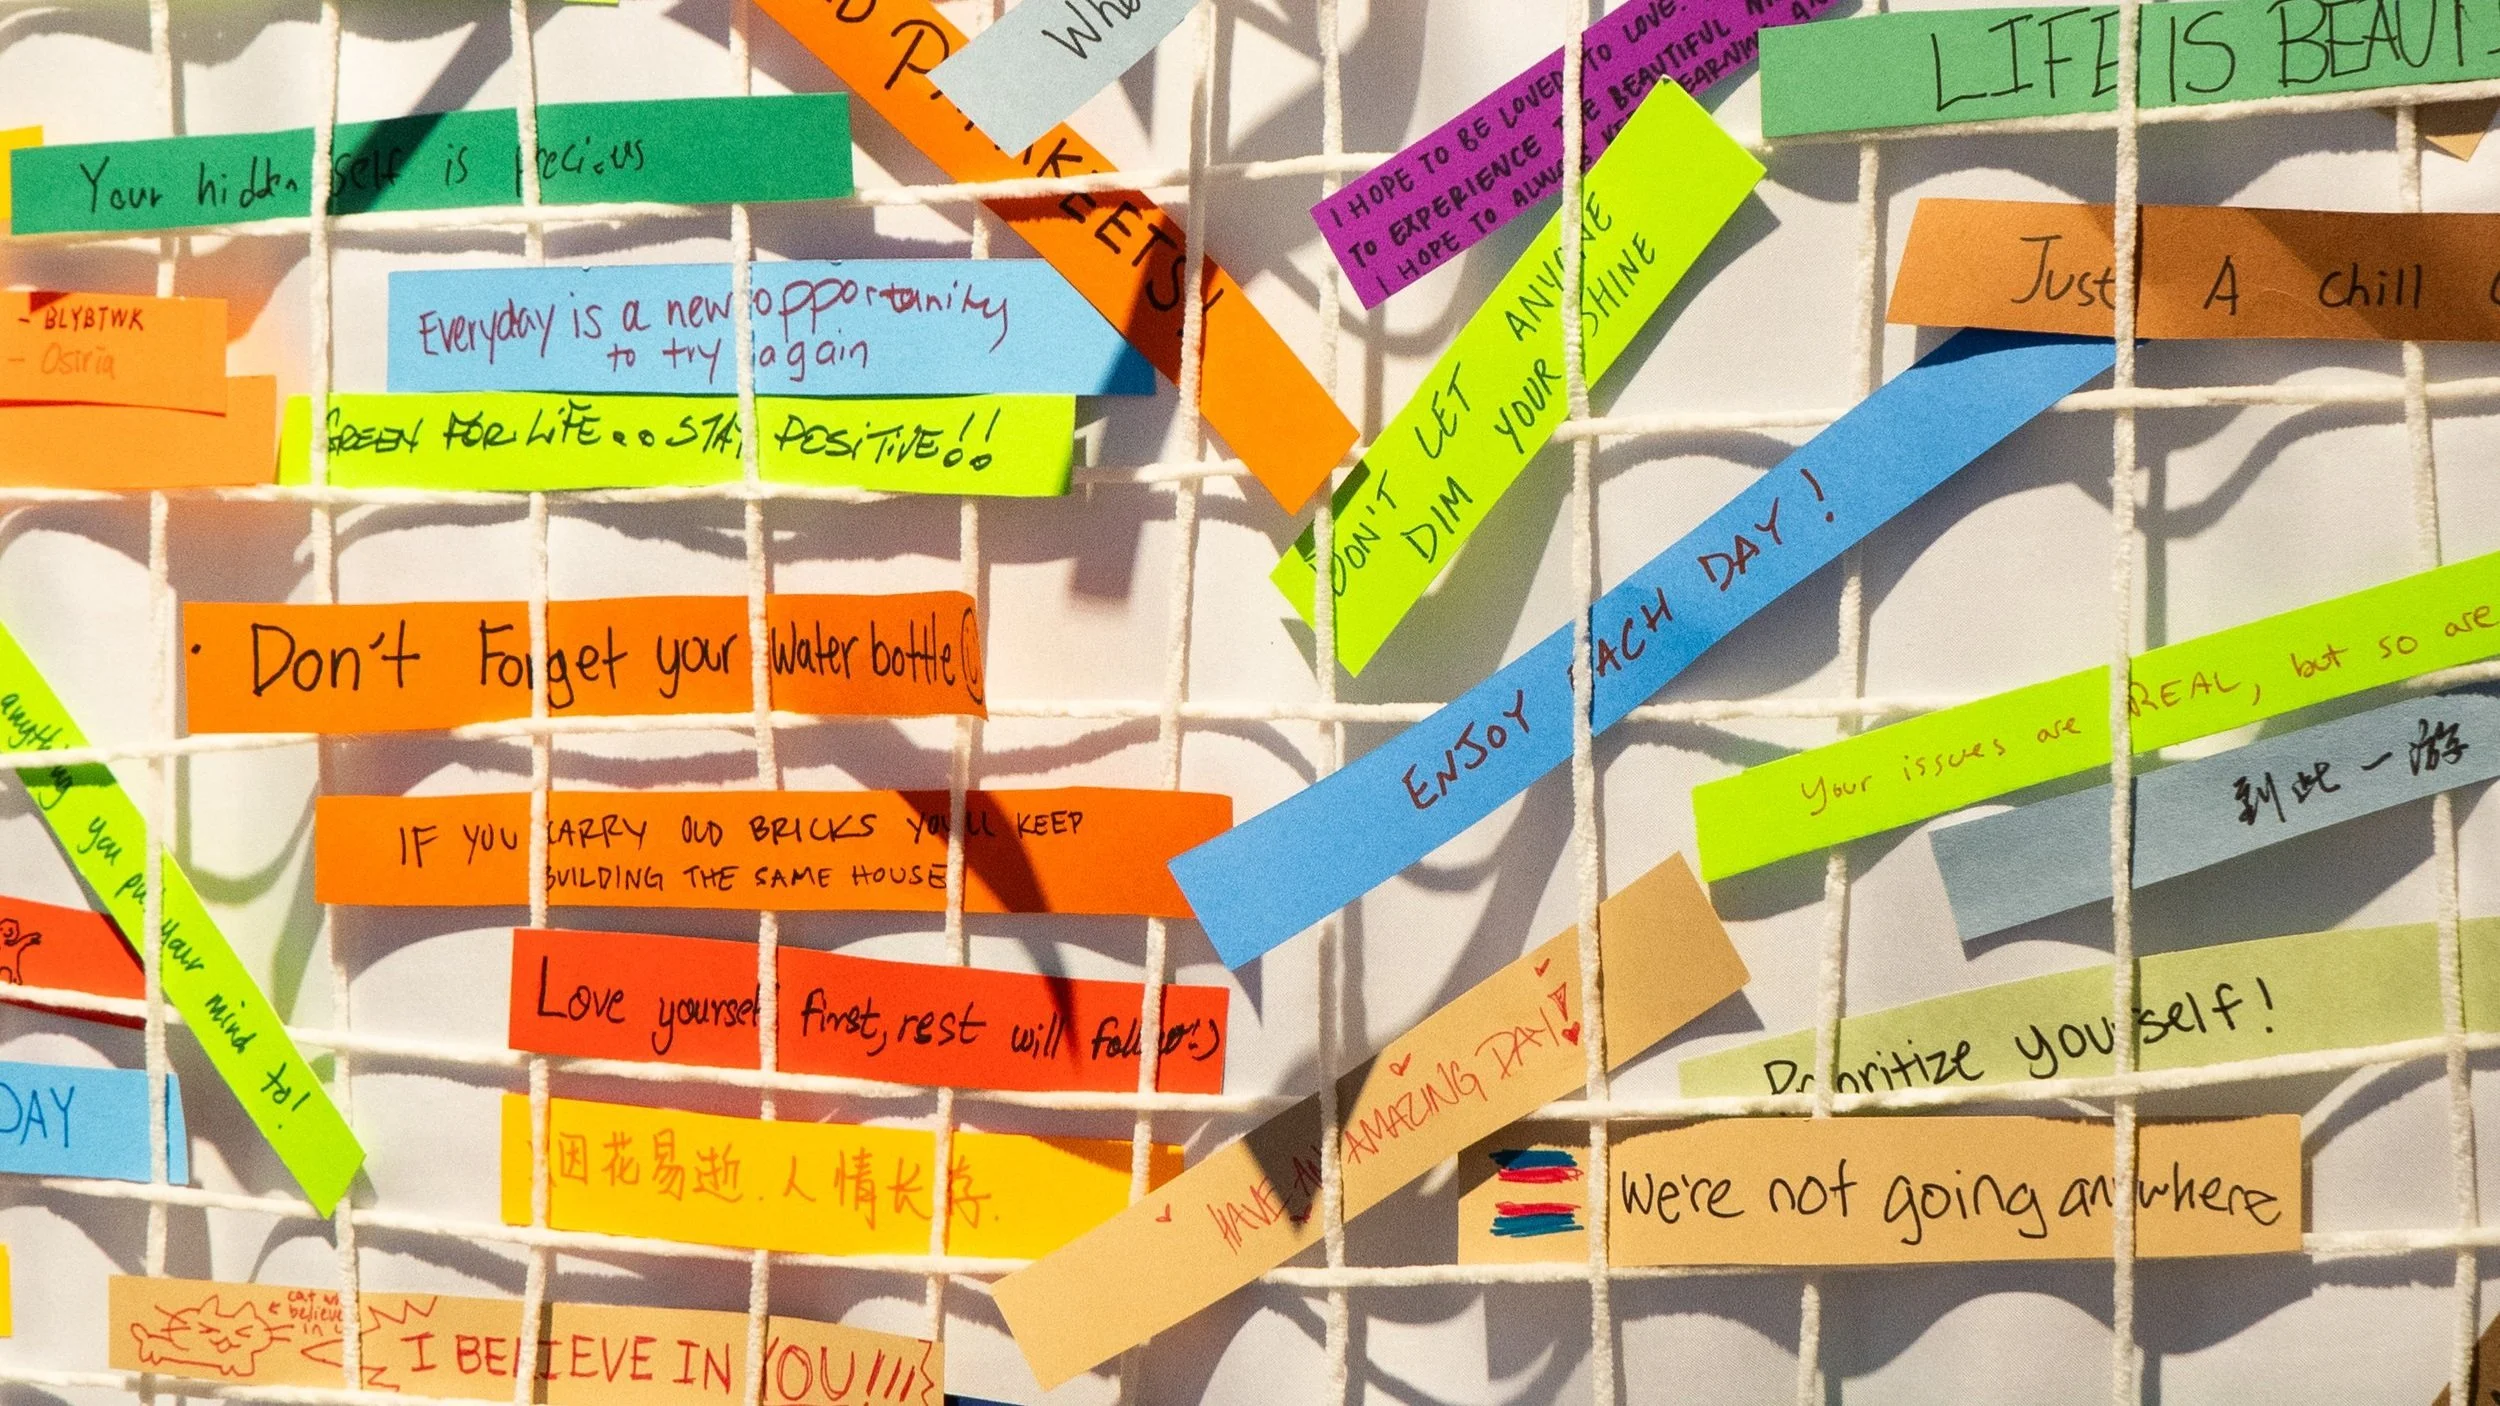 LIFE IS
I HOPE TO BE LOVED TO LOVE.
TO EXPERIENCE THE BEAUTIFUL
I HOPE TO ALWAYS
Your hidden self is precious
Just A chill
DON'T LET ANYONE
DIM YOUR SHINE
Everyday is a new opportunity
to try again
- BLYBTWK
- Osiria
GREEN FOR LIFE.. STAY POSITIVE!!
ENJOY EACH DAY!
Don't Forget your Water bottle
Your issues are REAL, but so are
到此一游
anything you put your mind to!
IF YOU CARRY OLD BRICKS YOU'LL KEEP
BUILDING THE SAME HOUSE
Love yourself first, rest will follow :)
Prioritize yourself!
HAVE AN AMAZING DAY!
DAY
烟花易逝.人情长存.
We're not going anywhere
believe
I BELIEVE IN YOU!!!